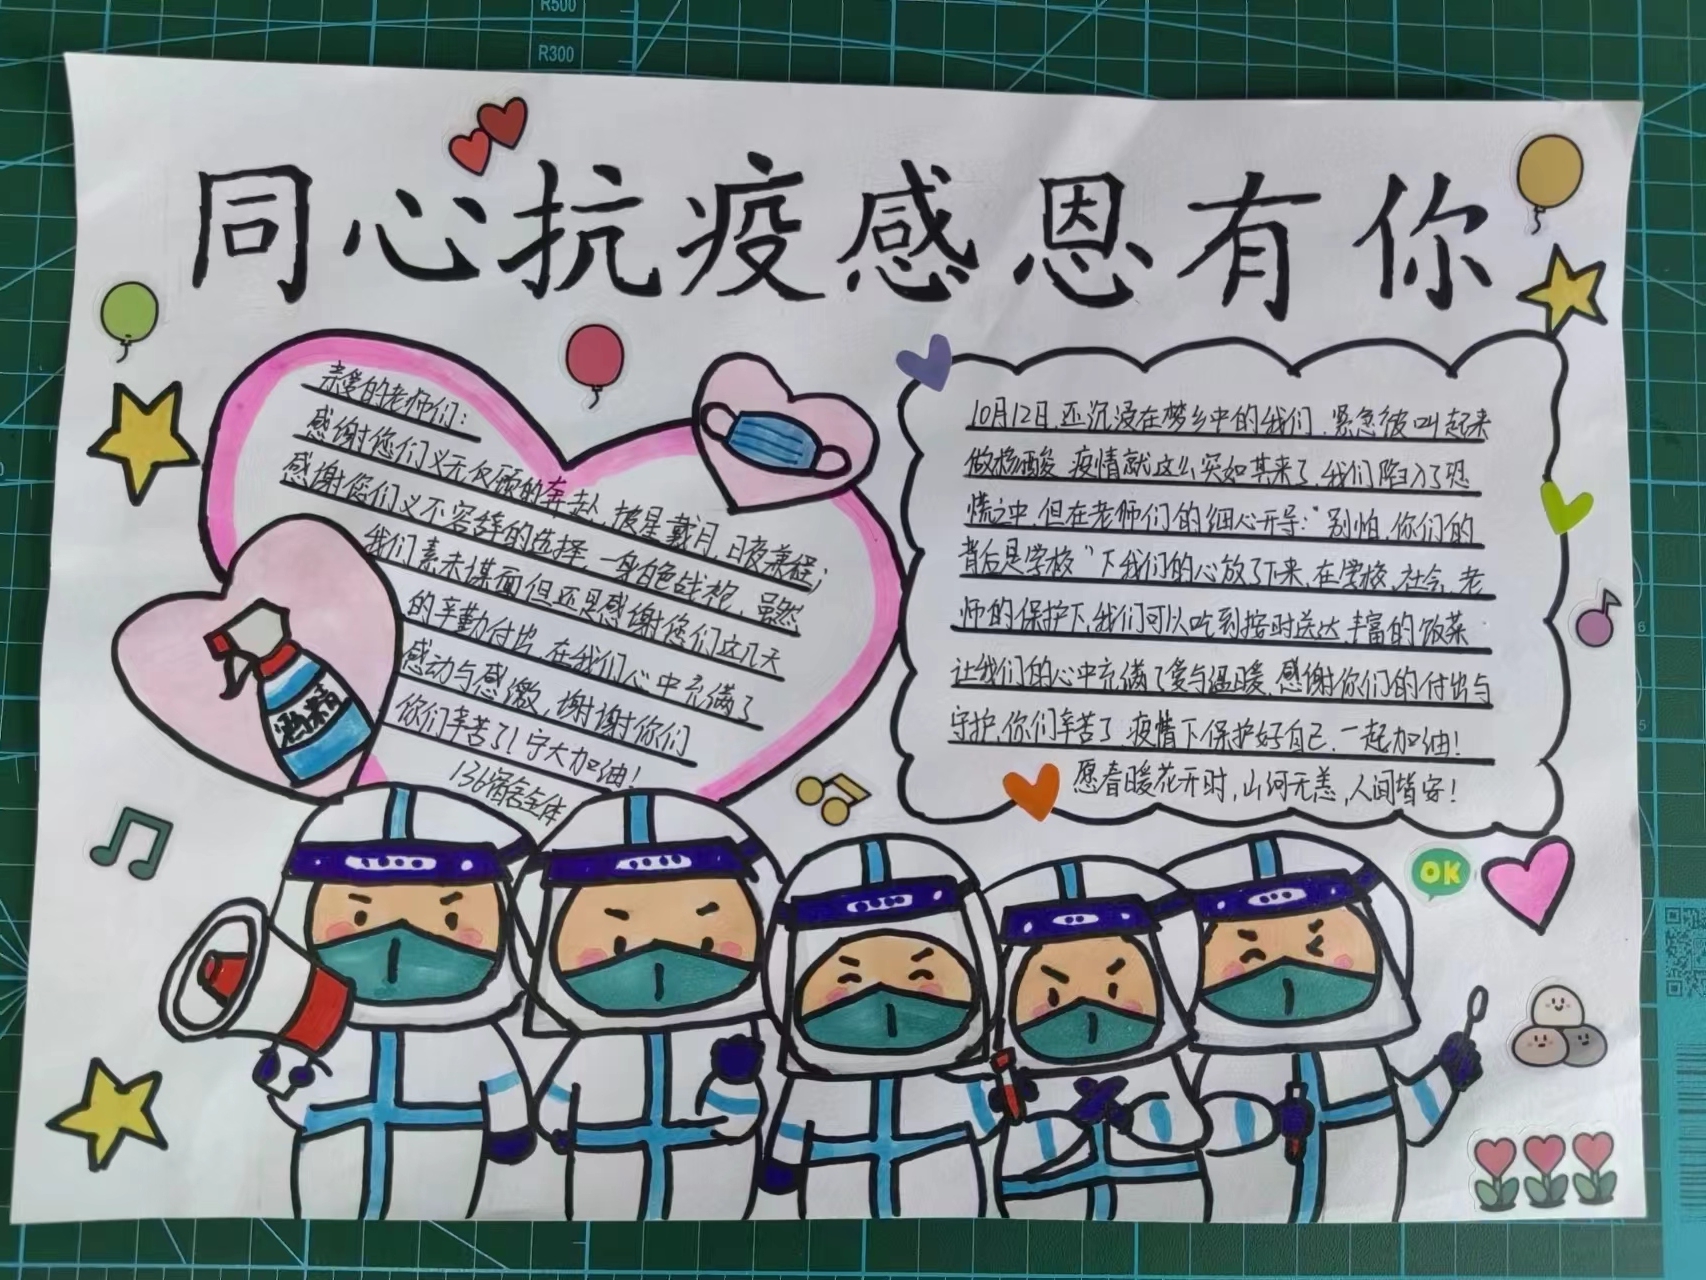 R500
R300
同心抗疫感恩有你
亲爱的老师们：
感谢您们义无反顾的奔赴，披星戴月，日夜兼程；
感谢您们义不容辞的选择，一身白色战袍，虽然
我们素未谋面但还是感谢您们这几天
的辛勤付出，在我们心中充满了
感动与感激，谢谢你们
你们辛苦了！宁大加油！
136宿舍全体
消毒
10月12日，还沉浸在梦乡中的我们，紧急被叫起来
做核酸，疫情就这么突如其来了，我们陷入了恐
慌之中，但在老师们的细心开导："别怕，你们的
背后是学校"下我们的心放了下来，在学校、社会、老
师的保护下，我们可以吃到按时送达丰富的饭菜
让我们的心中充满了爱与温暖，感谢你们的付出与
守护，你们辛苦了，疫情下保护好自己，一起加油！
愿春暖花开时，山河无恙，人间皆安！
OK